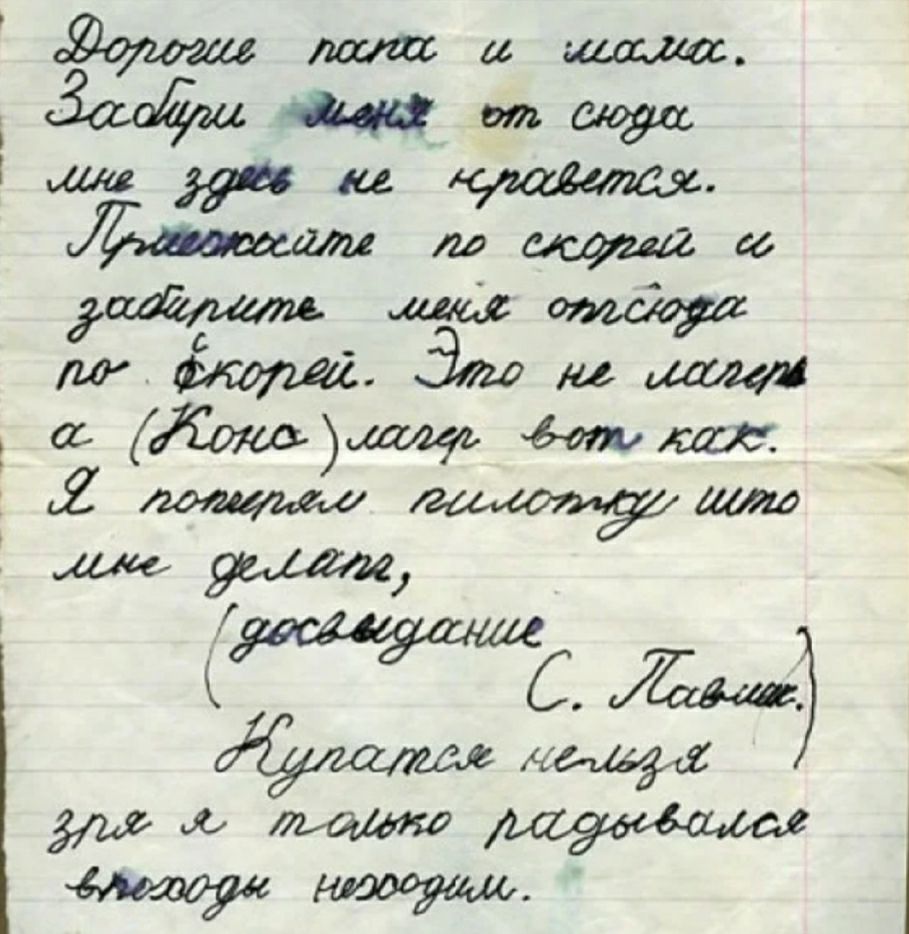 Дорогие папа и мама.
Забири меня от сюда
мне здесь не нравется.
Приезжыйте по скорей и
забирите меня отсюда
по скорей. Это не лагерь
а (Конс) лагер вот как.
Я потерял пилотку што
мне делать,
(досвыдание
С. Павлик.)
Купатся нельзя
зря я только радывался
впоходы неходим.